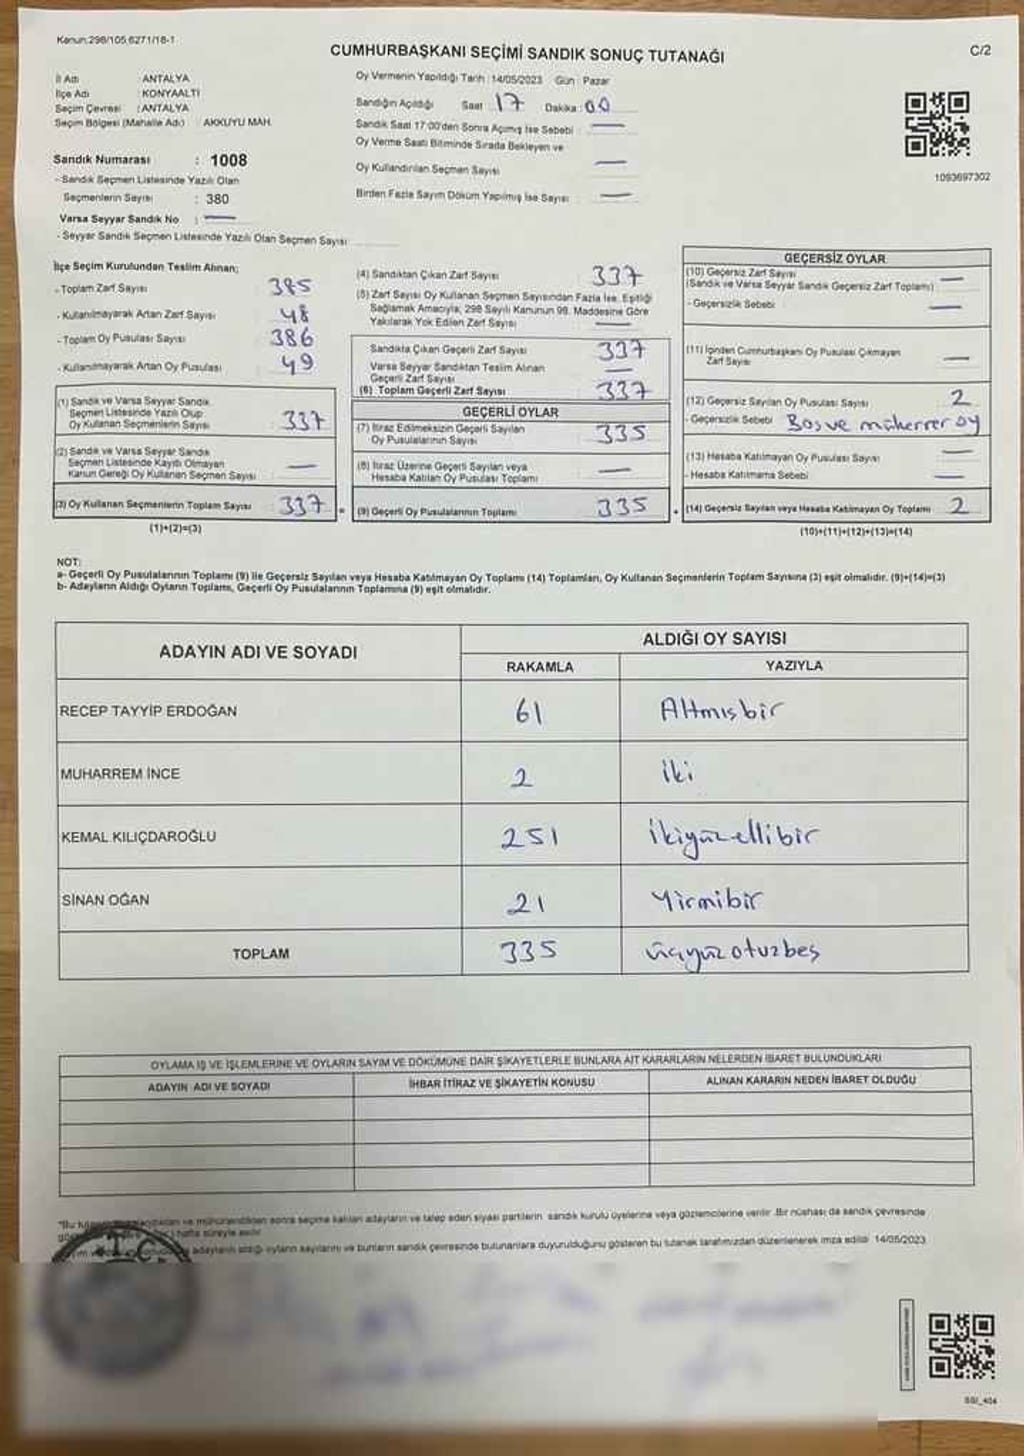 Kanun:298/105,6271/18-1
CUMHURBAŞKANI SEÇİMİ SANDIK SONUÇ TUTANAĞI
C/2
İl Adı : ANTALYA
İlçe Adı : KONYAALTI
Seçim Çevresi : ANTALYA
Seçim Bölgesi (Mahalle Adı) : AKKUYU MAH.
Sandık Numarası : 1008
- Sandık Seçmen Listesinde Yazılı Olan
Seçmenlerin Sayısı : 380
Varsa Seyyar Sandık No : —
- Seyyar Sandık Seçmen Listesinde Yazılı Olan Seçmen Sayısı
Oy Vermenin Yapıldığı Tarih : 14/05/2023 Gün : Pazar
Sandığın Açıldığı Saat : 17 Dakika : 00
Sandık Saat 17:00'den Sonra Açımış İse Sebebi : —
Oy Verme Saati Bitiminde Sırada Bekleyen ve
Oy Kullandırılan Seçmen Sayısı —
Birden Fazla Sayım Döküm Yapılmış İse Sayısı : —
1093697302
İlçe Seçim Kurulundan Teslim Alınan;
- Toplam Zarf Sayısı 385
- Kullanılmayarak Artan Zarf Sayısı 48
- Toplam Oy Pusulası Sayısı 386
- Kullanılmayarak Artan Oy Pusulası 49
(1) Sandık ve Varsa Seyyar Sandık
Seçmen Listesinde Yazılı Olup
Oy Kullanan Seçmenlerin Sayısı 337
(2) Sandık ve Varsa Seyyar Sandık
Seçmen Listesinde Kayıtlı Olmayan
Kanun Gereği Oy Kullanan Seçmen Sayısı —
(3) Oy Kullanan Seçmenlerin Toplam Sayısı 337
(1)+(2)=(3)
(4) Sandıktan Çıkan Zarf Sayısı 337
(5) Zarf Sayısı Oy Kullanan Seçmen Sayısından Fazla İse, Eşitliği
Sağlamak Amacıyla, 298 Sayılı Kanunun 98. Maddesine Göre
Yakılarak Yok Edilen Zarf Sayısı —
Sandıkta Çıkan Geçerli Zarf Sayısı 337
Varsa Seyyar Sandıktan Teslim Alınan
Geçerli Zarf Sayısı —
(6) Toplam Geçerli Zarf Sayısı 337
GEÇERLİ OYLAR
(7) İtiraz Edilmeksizin Geçerli Sayılan
Oy Pusulalarının Sayısı 335
(8) İtiraz Üzerine Geçerli Sayılan veya
Hesaba Katılan Oy Pusulası Toplamı —
(9) Geçerli Oy Pusulalarının Toplamı 335
GEÇERSİZ OYLAR
(10) Geçersiz Zarf Sayısı
(Sandık ve Varsa Seyyar Sandık Geçersiz Zarf Toplamı) —
- Geçersizlik Sebebi : —
(11) İçinden Cumhurbaşkanı Oy Pusulası Çıkmayan
Zarf Sayısı —
(12) Geçersiz Sayılan Oy Pusulası Sayısı 2
- Geçersizlik Sebebi Boş ve mükerrer oy
(13) Hesaba Katılmayan Oy Pusulası Sayısı —
- Hesaba Katılmama Sebebi —
(14) Geçersiz Sayılan veya Hesaba Katılmayan Oy Toplamı 2
(10)+(11)+(12)+(13)=(14)
NOT:
a- Geçerli Oy Pusulalarının Toplamı (9) ile Geçersiz Sayılan veya Hesaba Katılmayan Oy Toplamı (14) Toplamları, Oy Kullanan Seçmenlerin Toplam Sayısına (3) eşit olmalıdır. (9)+(14)=(3)
b- Adayların Aldığı Oyların Toplamı, Geçerli Oy Pusulalarının Toplamına (9) eşit olmalıdır.
ADAYIN ADI VE SOYADI
ALDIĞI OY SAYISI
RAKAMLA YAZIYLA
RECEP TAYYİP ERDOĞAN 61 Altmışbir
MUHARREM İNCE 2 iki
KEMAL KILIÇDAROĞLU 251 ikiyüzellibir
SİNAN OĞAN 21 Yirmibir
TOPLAM 335 üçyüzotuzbeş
OYLAMA İŞ VE İŞLEMLERİNE VE OYLARIN SAYIM VE DÖKÜMÜNE DAİR ŞİKAYETLERLE BUNLARA AİT KARARLARIN NELERDEN İBARET BULUNDUKLARI
ADAYIN ADI VE SOYADI İHBAR İTİRAZ VE ŞİKAYETİN KONUSU ALINAN KARARIN NEDEN İBARET OLDUĞU
*Bu ve mühürlendikten sonra seçime katılan adayların ve talep eden siyasi partilerin sandık kurulu üyelerine veya gözlemcilerine verilir. Bir nüshası da sandık çevresinde
hafta süreyle asılır.
adayların aldığı oyların sayılarını ve bunların sandık çevresinde bulunanlara duyurulduğunu gösteren bu tutanak tarafımızdan düzenlenerek imza edildi. 14/05/2023
T.C.
SGI_404